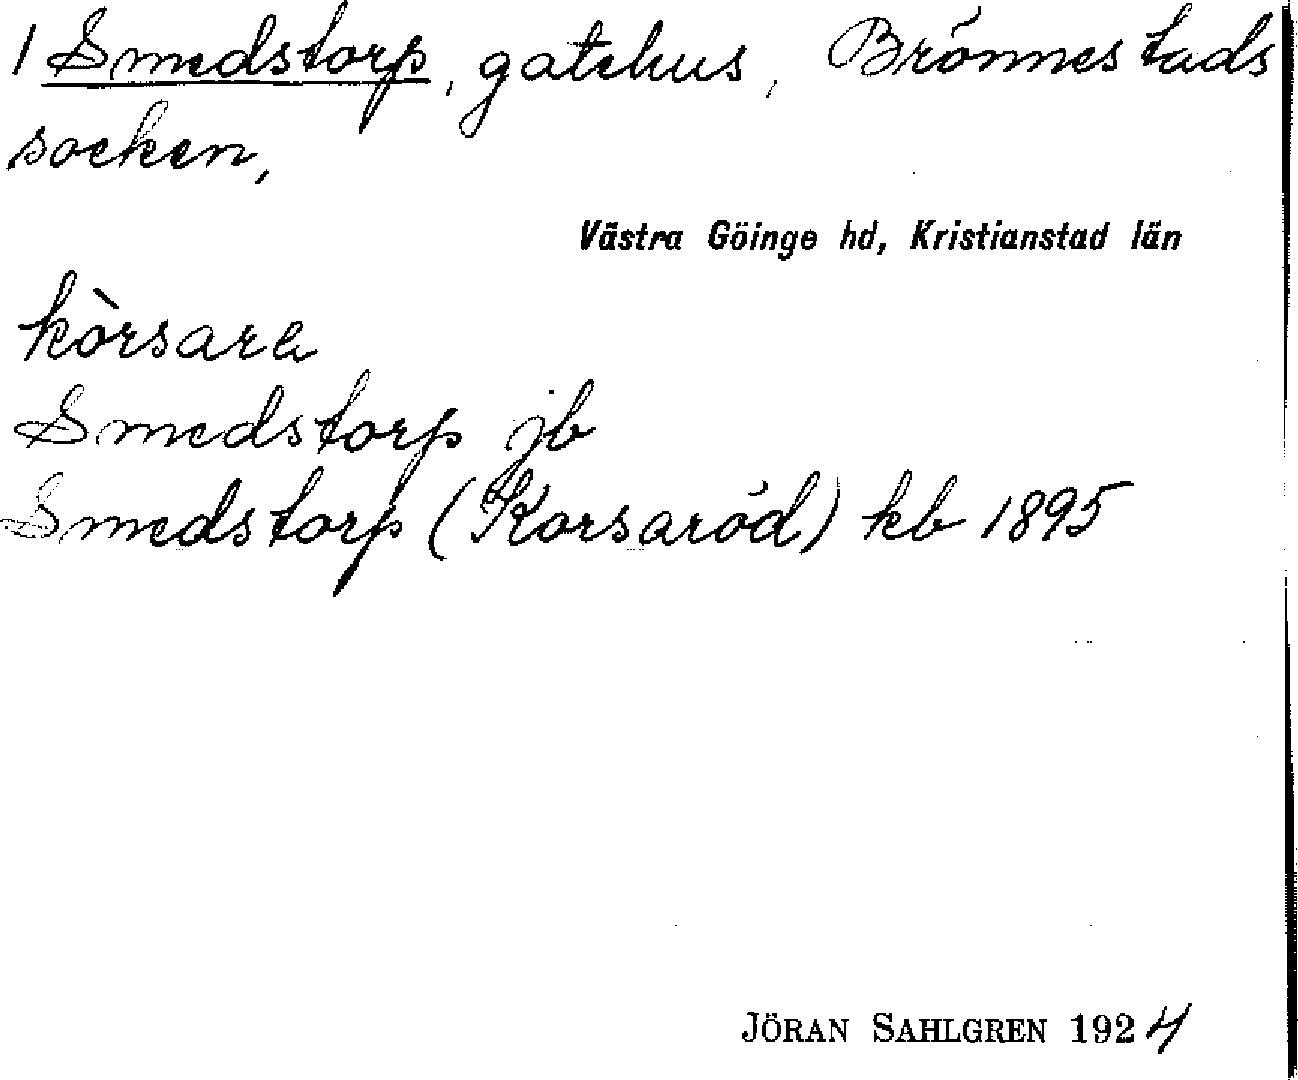 1 Smedstorp, gatehus, Brönnestads
socken,
Västra Göinge hd, Kristianstad län
kòrsara
Smedstorp jb
Smedstorp (Korsaröd) kb 1895
JÖRAN SAHLGREN 1924